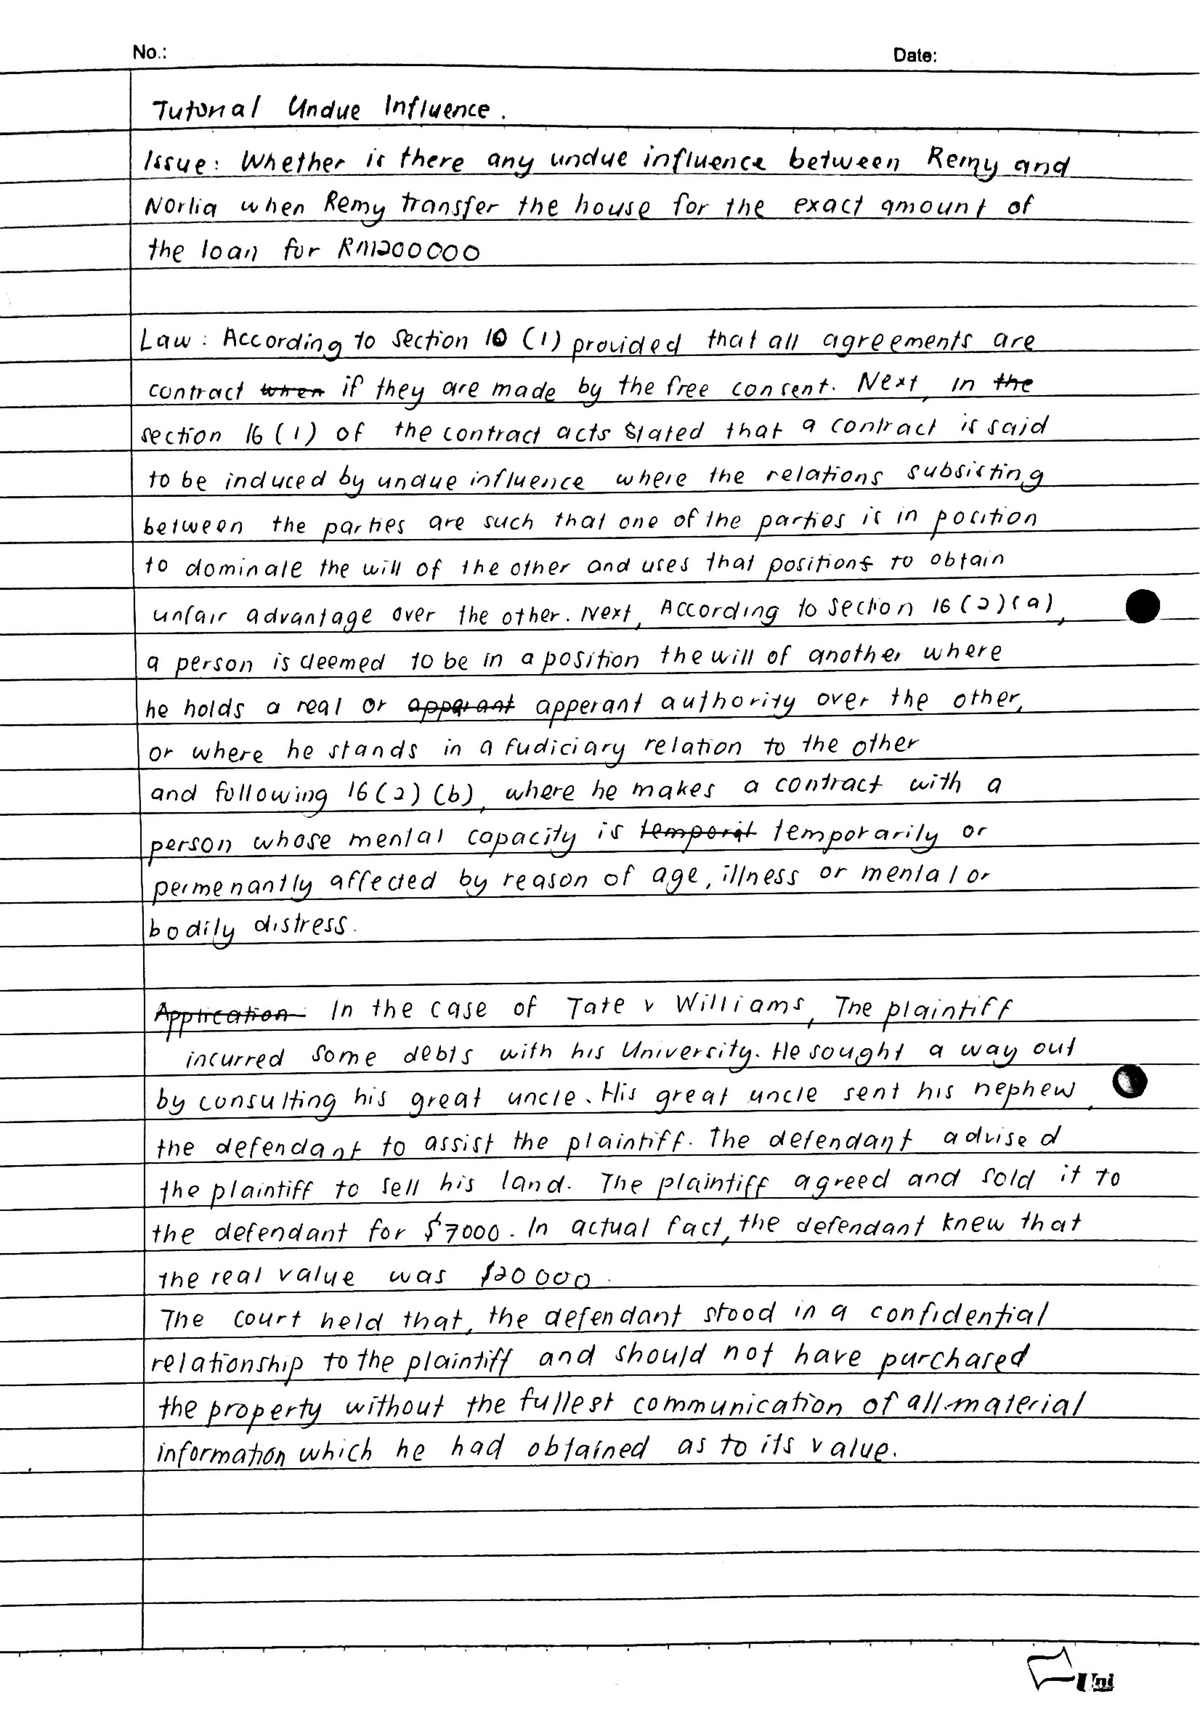 No.:
Date:
Tutorial Undue Influence.
Issue: Whether is there any undue influence between Remy and
Norlia when Remy transfer the house for the exact amount of
the loan for RM1200000
Law: According to Section 10 (1) provided that all agreements are
contract when if they are made by the free consent. Next, in the
section 16 (1) of the contract acts stated that a contract is said
to be induced by undue influence where the relations subsisting
between the parties are such that one of the parties is in position
to dominate the will of the other and uses that positions to obtain
unfair advantage over the other. Next, According to section 16 (2)(a),
a person is deemed to be in a position the will of another where
he holds a real or apparant apperant authority over the other,
or where he stands in a fudiciary relation to the other
and following 16(2) (b), where he makes a contract with a
person whose mental capacity is temporit temporarily or
permenantly affected by reason of age, illness or mental or
bodily distress.
Application In the case of Tate v Williams, The plaintiff
incurred some debts with his University. He sought a way out
by consulting his great uncle. His great uncle sent his nephew,
the defendant to assist the plaintiff. The defendant advised
the plaintiff to sell his land. The plaintiff agreed and sold it to
the defendant for $7000. In actual fact, the defendant knew that
the real value was $20 000.
The court held that, the defendant stood in a confidential
relationship to the plaintiff and should not have purchased
the property without the fullest communication of all material
information which he had obtained as to its value.
Uni